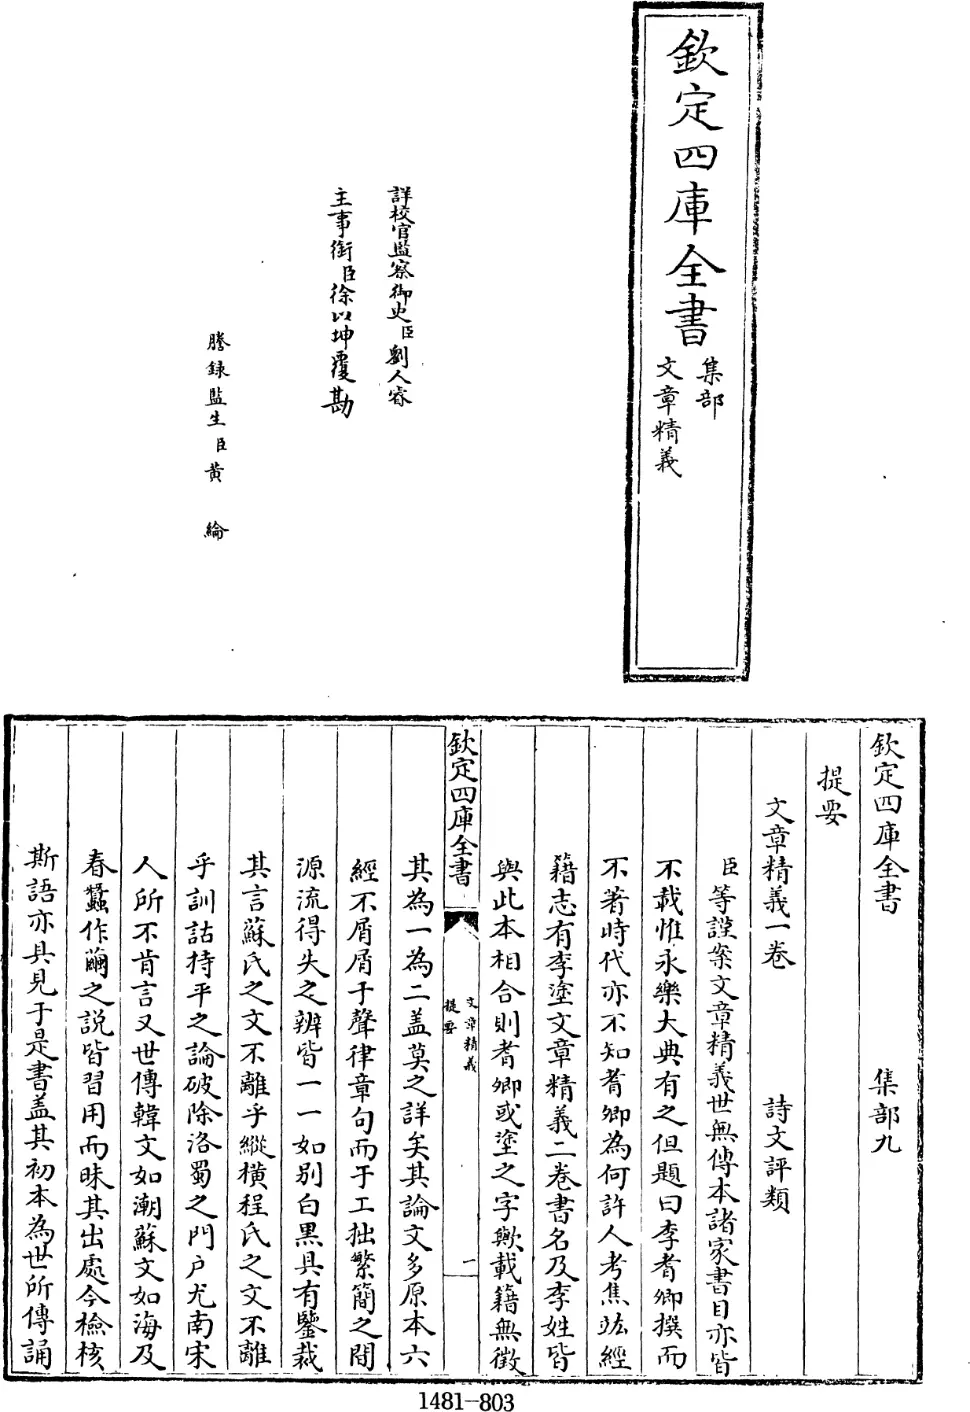 欽定四庫全書
集部
文章精義
詳校官監察御史臣劉人睿
主事銜臣徐以坤覆勘
謄録監生臣黄綸
欽定四庫全書 集部九
提要
文章精義一卷 詩文評類
臣等謹案文章精義世無傳本諸家書目亦皆
不載惟永樂大典有之但題曰李耆卿撰而
不著時代亦不知耆卿為何許人考焦竑經
籍志有李塗文章精義二卷書名及李姓皆
與此本相合則耆卿或塗之字歟載籍無徵
欽定四庫全書
文章精義
提要
一
其為一為二蓋莫之詳矣其論文多原本六
經不屑屑于聲律章句而于工拙繁簡之間
源流得失之辨皆一一如別白黒具有鑒裁
其言蘇氏之文不離乎縱横程氏之文不離
乎訓詁持平之論破除洛蜀之門户尤南宋
人所不肯言又世傳韓文如潮蘇文如海及
春蠶作繭之説皆習用而昧其出處今檢核
斯語亦具見于是書蓋其初本為世所傳誦
1481-803